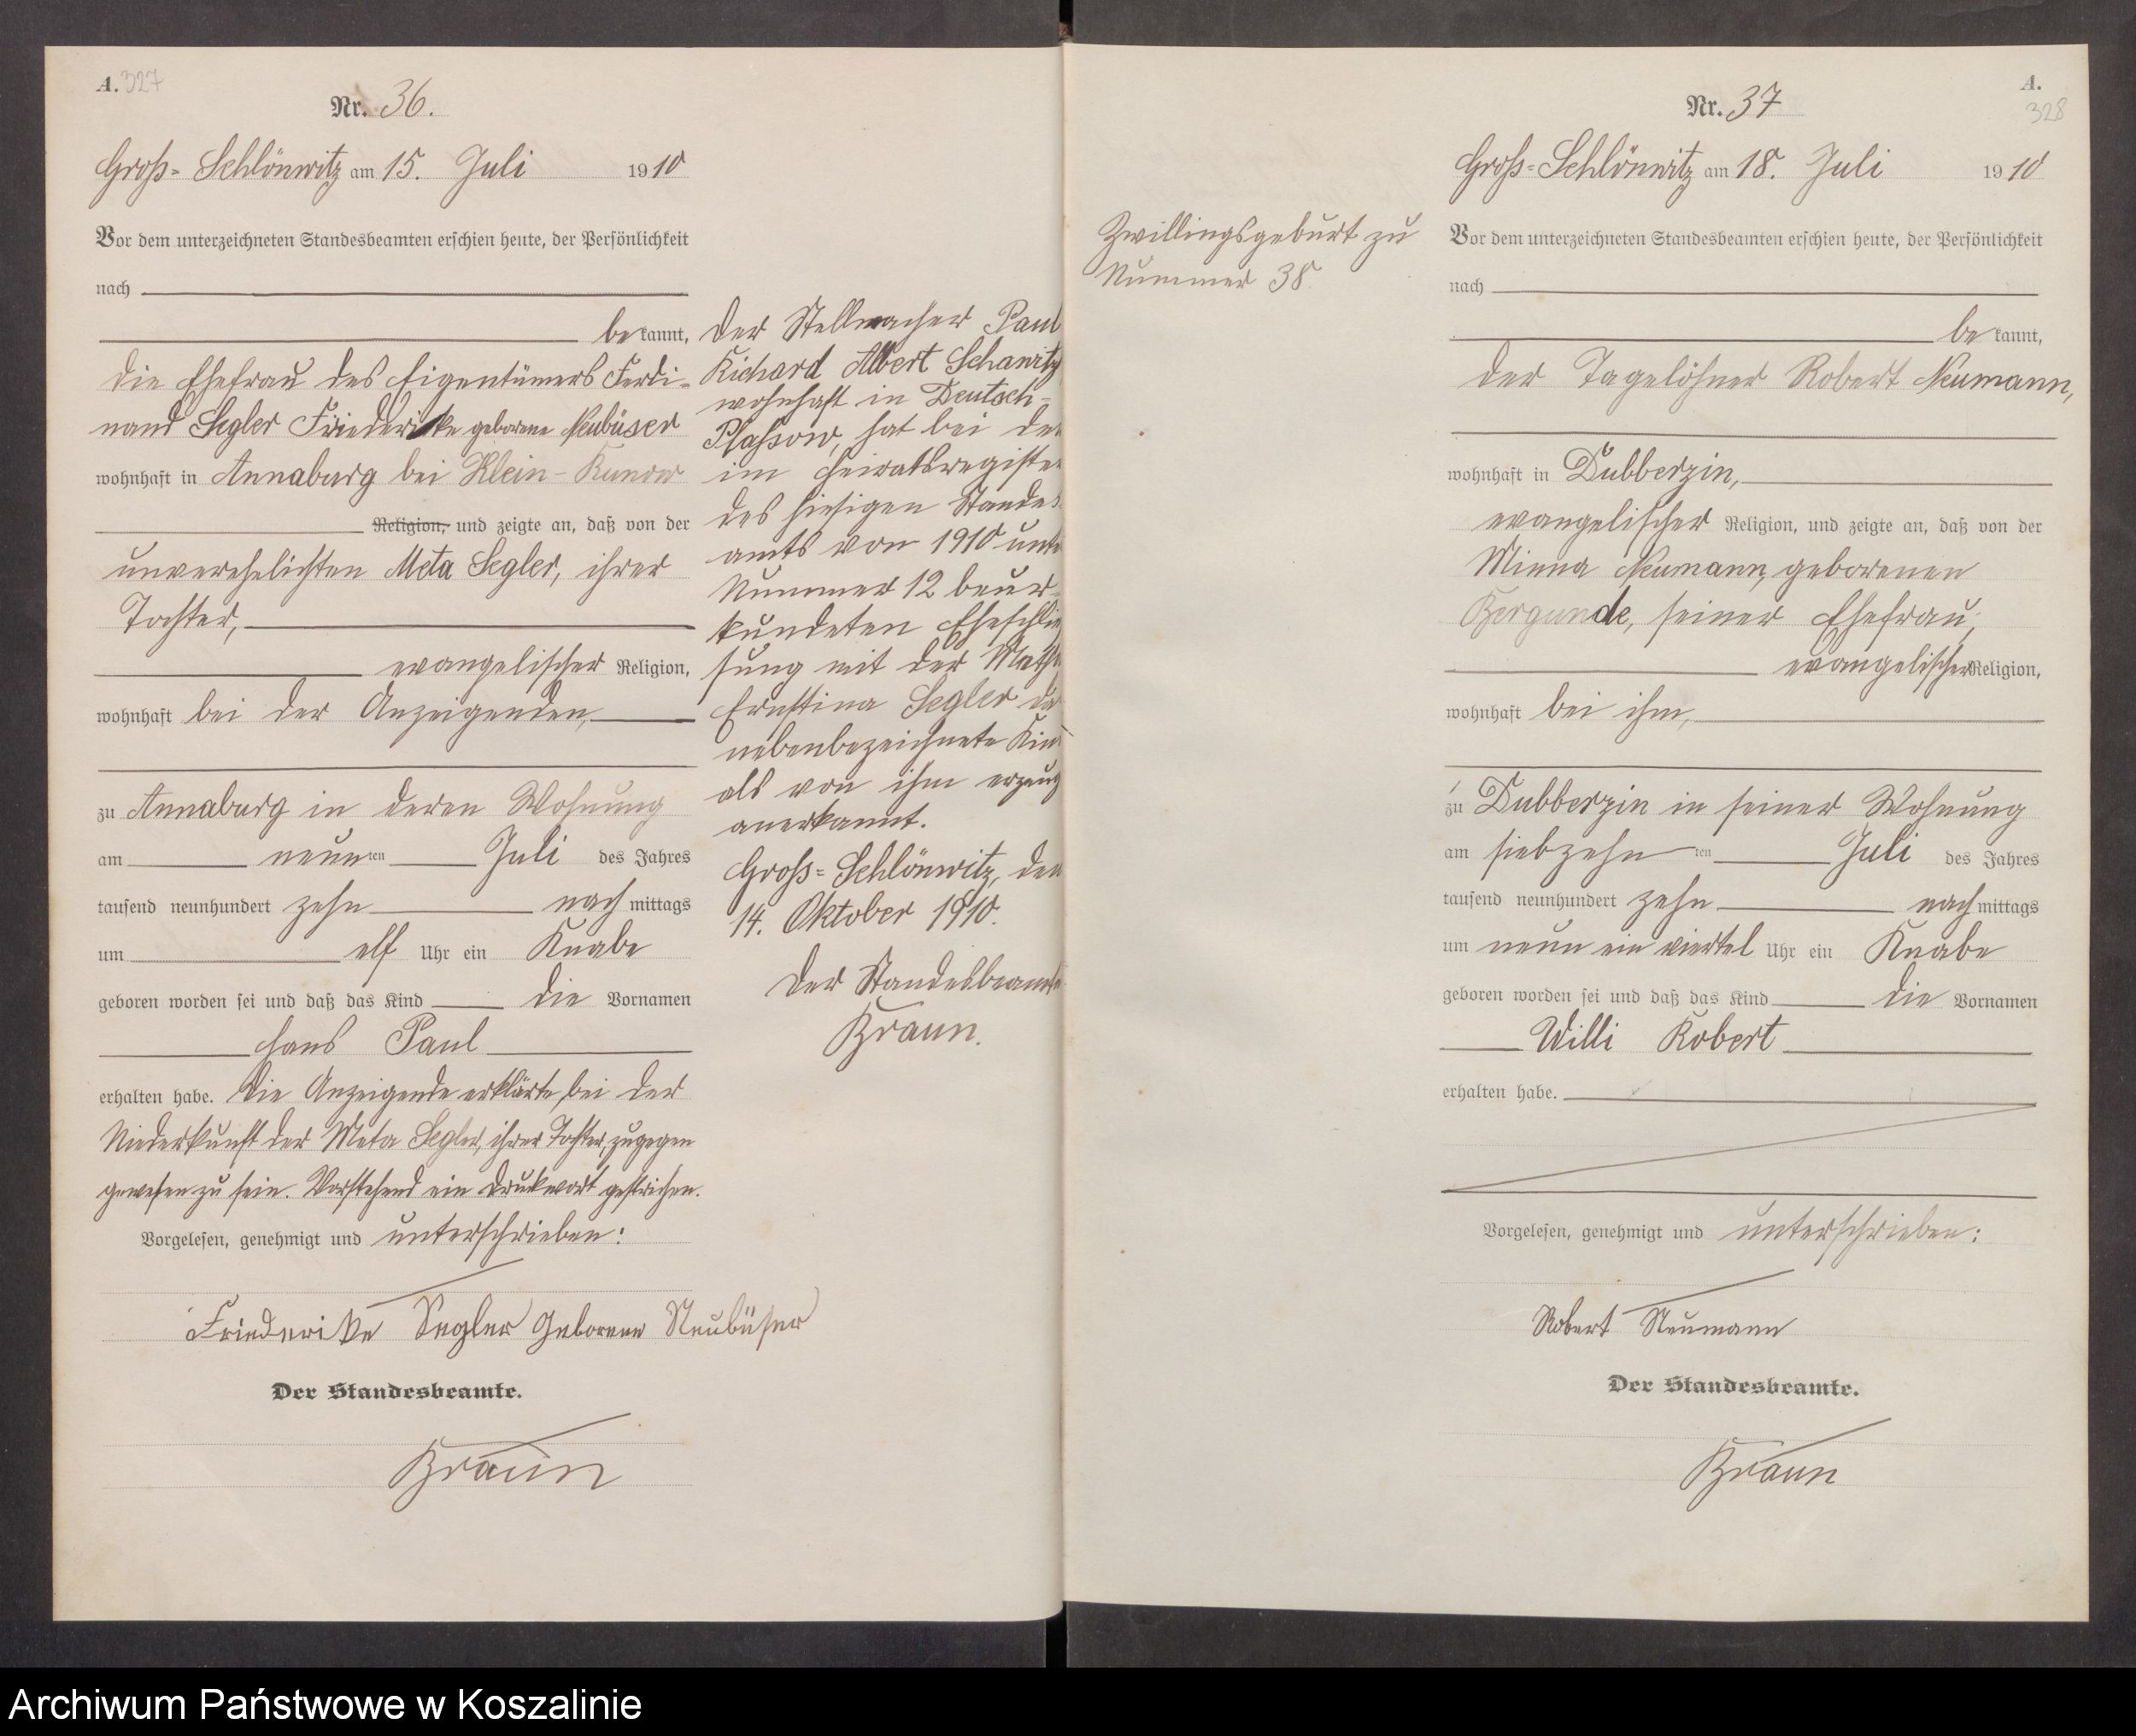 A. 327
Nr. 36.
Groß-Schlönwitz am 15. Juli 1910
Vor dem unterzeichneten Standesbeamten erschien heute, der Persönlichkeit
nach
bekannt,
die Ehefrau des Eigentümers Ferdi-
nand Segler Friederike geborene Neubüser
wohnhaft in Annaburg bei Klein-Runow
Religion, und zeigte an, daß von der
unverehelichten Meta Segler, ihrer
Tochter,
evangelischer Religion,
wohnhaft bei der Anzeigenden,
zu Annaburg in deren Wohnung
am neunten Juli des Jahres
tausend neunhundert zehn nachmittags
um elf Uhr ein Knabe
geboren worden sei und daß das Kind die Vornamen
Hans Paul
erhalten habe. Die Anzeigende erklärte, bei der
Niederkunft der Meta Segler, ihrer Tochter, zugegen
gewesen zu sein. Vorstehend ein Druckwort gestrichen.
Vorgelesen, genehmigt und unterschrieben:
Friederike Segler Geborene Neubüser
Der Standesbeamte.
Braun
Der Stellmacher Paul
Richard Albert Schanitz
wohnhaft in Deutsch-
Plassow, hat bei der
im Heiratsregister
des hiesigen Standes-
amts von 1910 unte
Nummer 12 beur-
kundeten Eheschlie
sung mit der
Ernstina Segler da
nebenbezeichnete Kin
als von ihm erzeug
anerkannt.
Groß-Schlönwitz, den
14. Oktober 1910.
Der Standesbeamte
Braun.
A.
328
Nr. 37
Groß-Schlönwitz am 18. Juli 1910
Zwillingsgeburt zu
Nummer 38.
Vor dem unterzeichneten Standesbeamten erschien heute, der Persönlichkeit
nach
bekannt,
der Tagelöhner Robert Neumann,
wohnhaft in Dubberzin,
evangelischer Religion, und zeigte an, daß von der
Minna Neumann, geborenen
Bergunde, seiner Ehefrau,
evangelischer Religion,
wohnhaft bei ihm,
zu Dubberzin in seiner Wohnung
am siebzehnten Juli des Jahres
tausend neunhundert zehn nachmittags
um neun ein viertel Uhr ein Knabe
geboren worden sei und daß das Kind die Vornamen
Willi Robert
erhalten habe.
Vorgelesen, genehmigt und unterschrieben:
Robert Neumann
Der Standesbeamte.
Braun
Archiwum Państwowe w Koszalinie